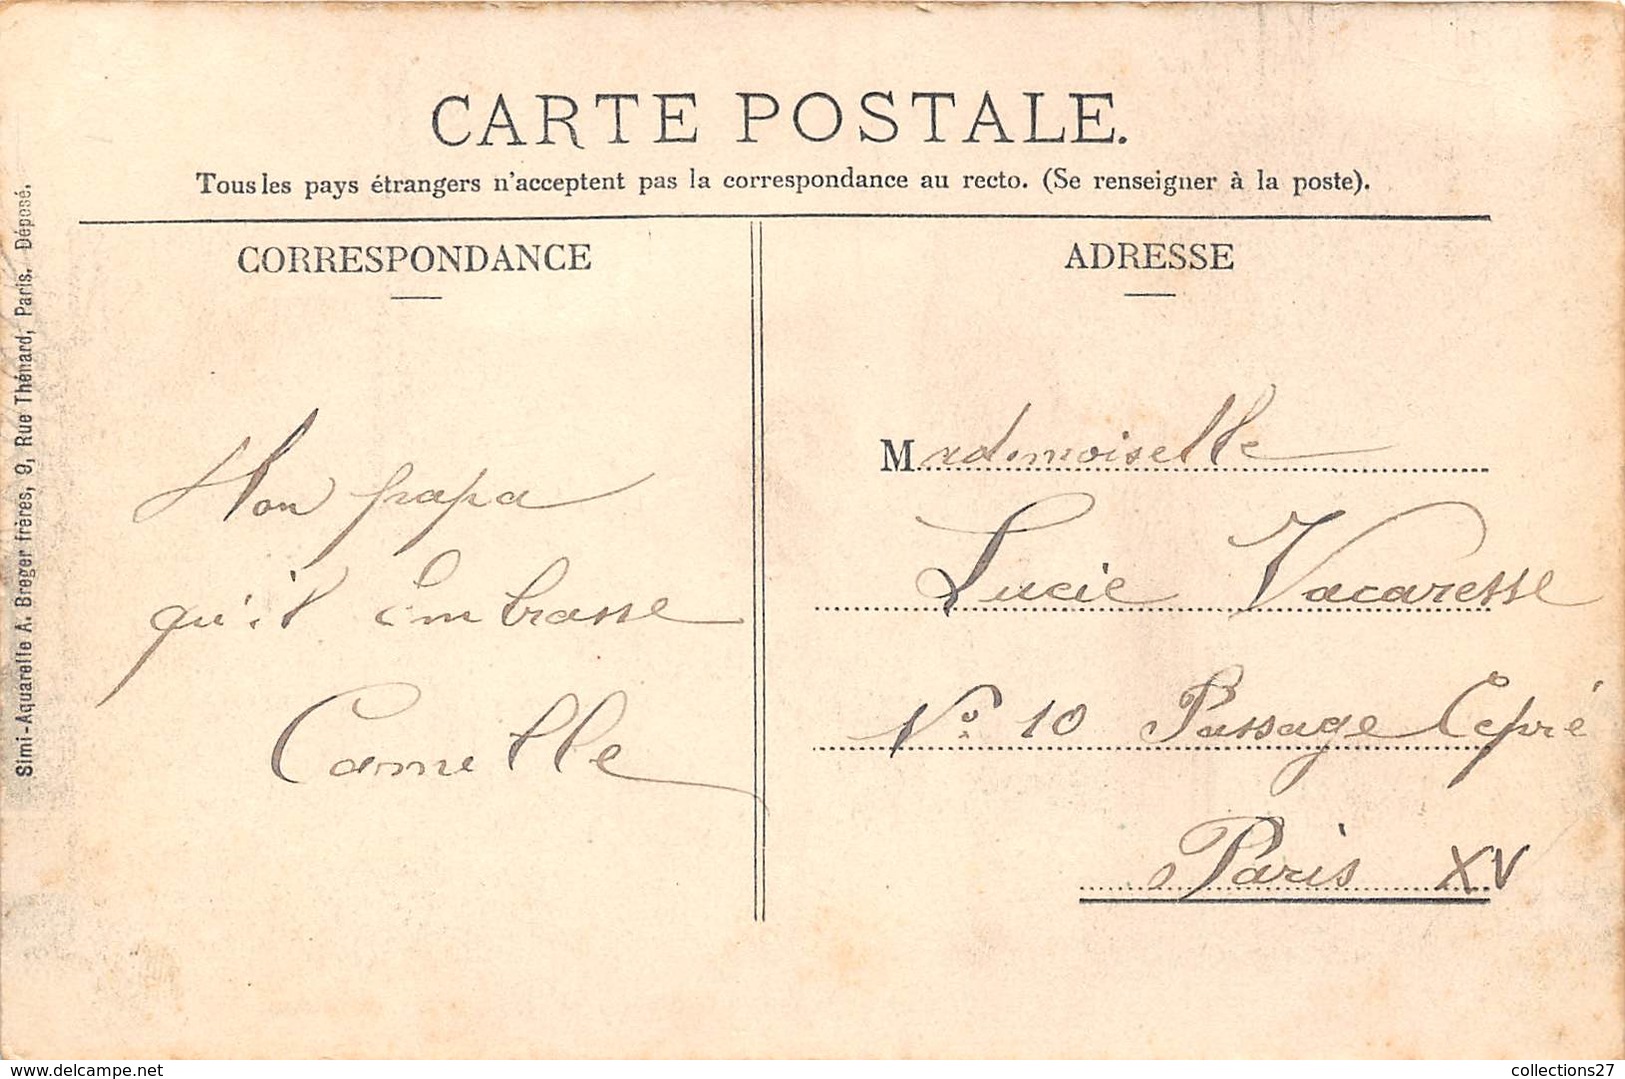 CARTE POSTALE.
Tous les pays étrangers n'acceptent pas la correspondance au recto. (Se renseigner à la poste).
Simi-Aquarelle A. Breger frères, 9, Rue Thénard, Paris. Déposé.
CORRESPONDANCE
Mon papa
qu'il embrasse
Camille
ADRESSE
Mademoiselle
Lucie Vacaresse
No. 10 Passage Cepré
Paris XV
delcampe.net
collections27